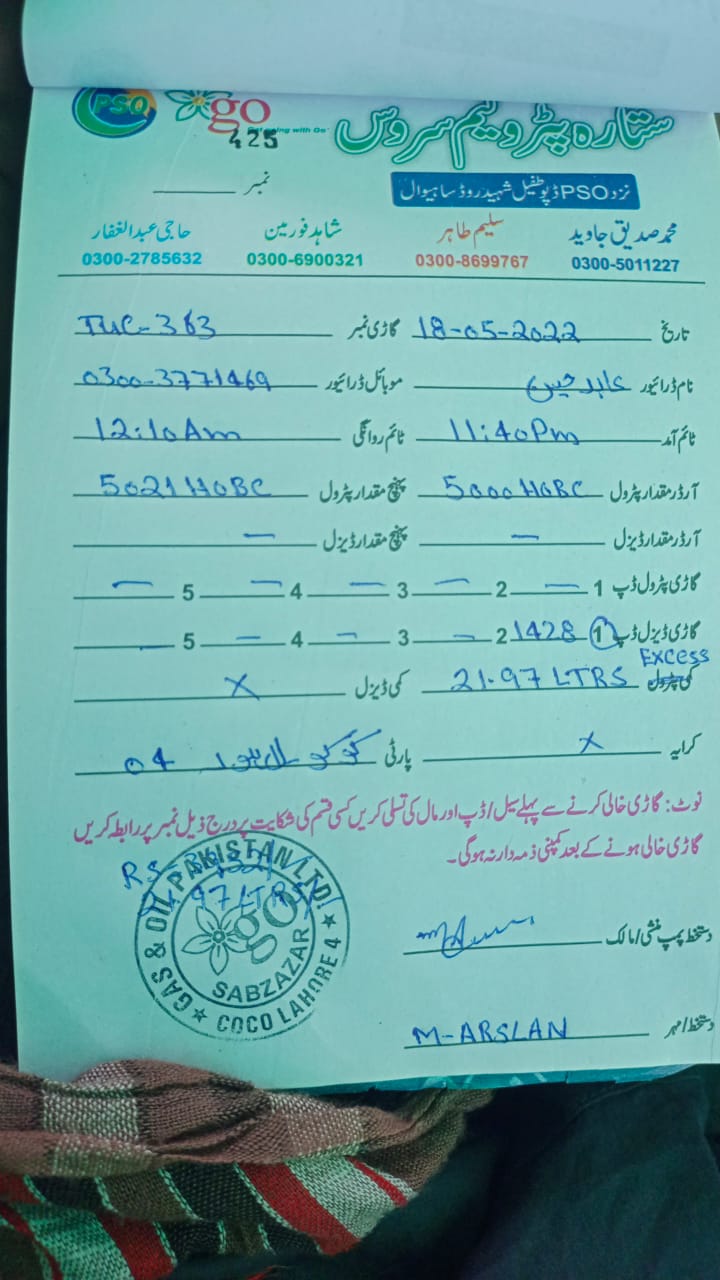 PSO go
Get going with Go
425
ستارہ پٹرولیم سروس
نزد PSO ڈپو طفیل شہید روڈ ساہیوال
نمبر
محمد صدیق جاوید سلیم طاہر شاہد فورمین حاجی عبدالغفار
0300-5011227 0300-8699767 0300-6900321 0300-2785632
تاریخ 18-05-2022 گاڑی نمبر TUC-363
نام ڈرائیور عابد حسین موبائل ڈرائیور 0300-3771469
ٹائم آمد 11:40Pm ٹائم روانگی 12:10Am
آرڈر مقدار پٹرول 5000 HOBC پہنچ مقدار پٹرول 5021 HOBC
آرڈر مقدار ڈیزل — پہنچ مقدار ڈیزل —
گاڑی پٹرول ڈپ 1 — 2 — 3 — 4 — 5 —
گاڑی ڈیزل ڈپ 1 1428 2 — 3 — 4 — 5 —
Excess
کمی پٹرول 21.97 LTRS کمی ڈیزل X
کرایہ X پارٹی کوکو لاہور 04
نوٹ: گاڑی خالی کرنے سے پہلے سیل/ڈپ اور مال کی تسلی کریں کسی قسم کی شکایت پر درج ذیل نمبر پر رابطہ کریں
گاڑی خالی ہونے کے بعد کمپنی ذمہ دار نہ ہوگی۔
GAS & OIL PAKISTAN LTD.
go
SABZAZAR
COCO LAHORE 4
دستخط پمپ منشی/مالک
دستخط/مہر M-ARSLAN